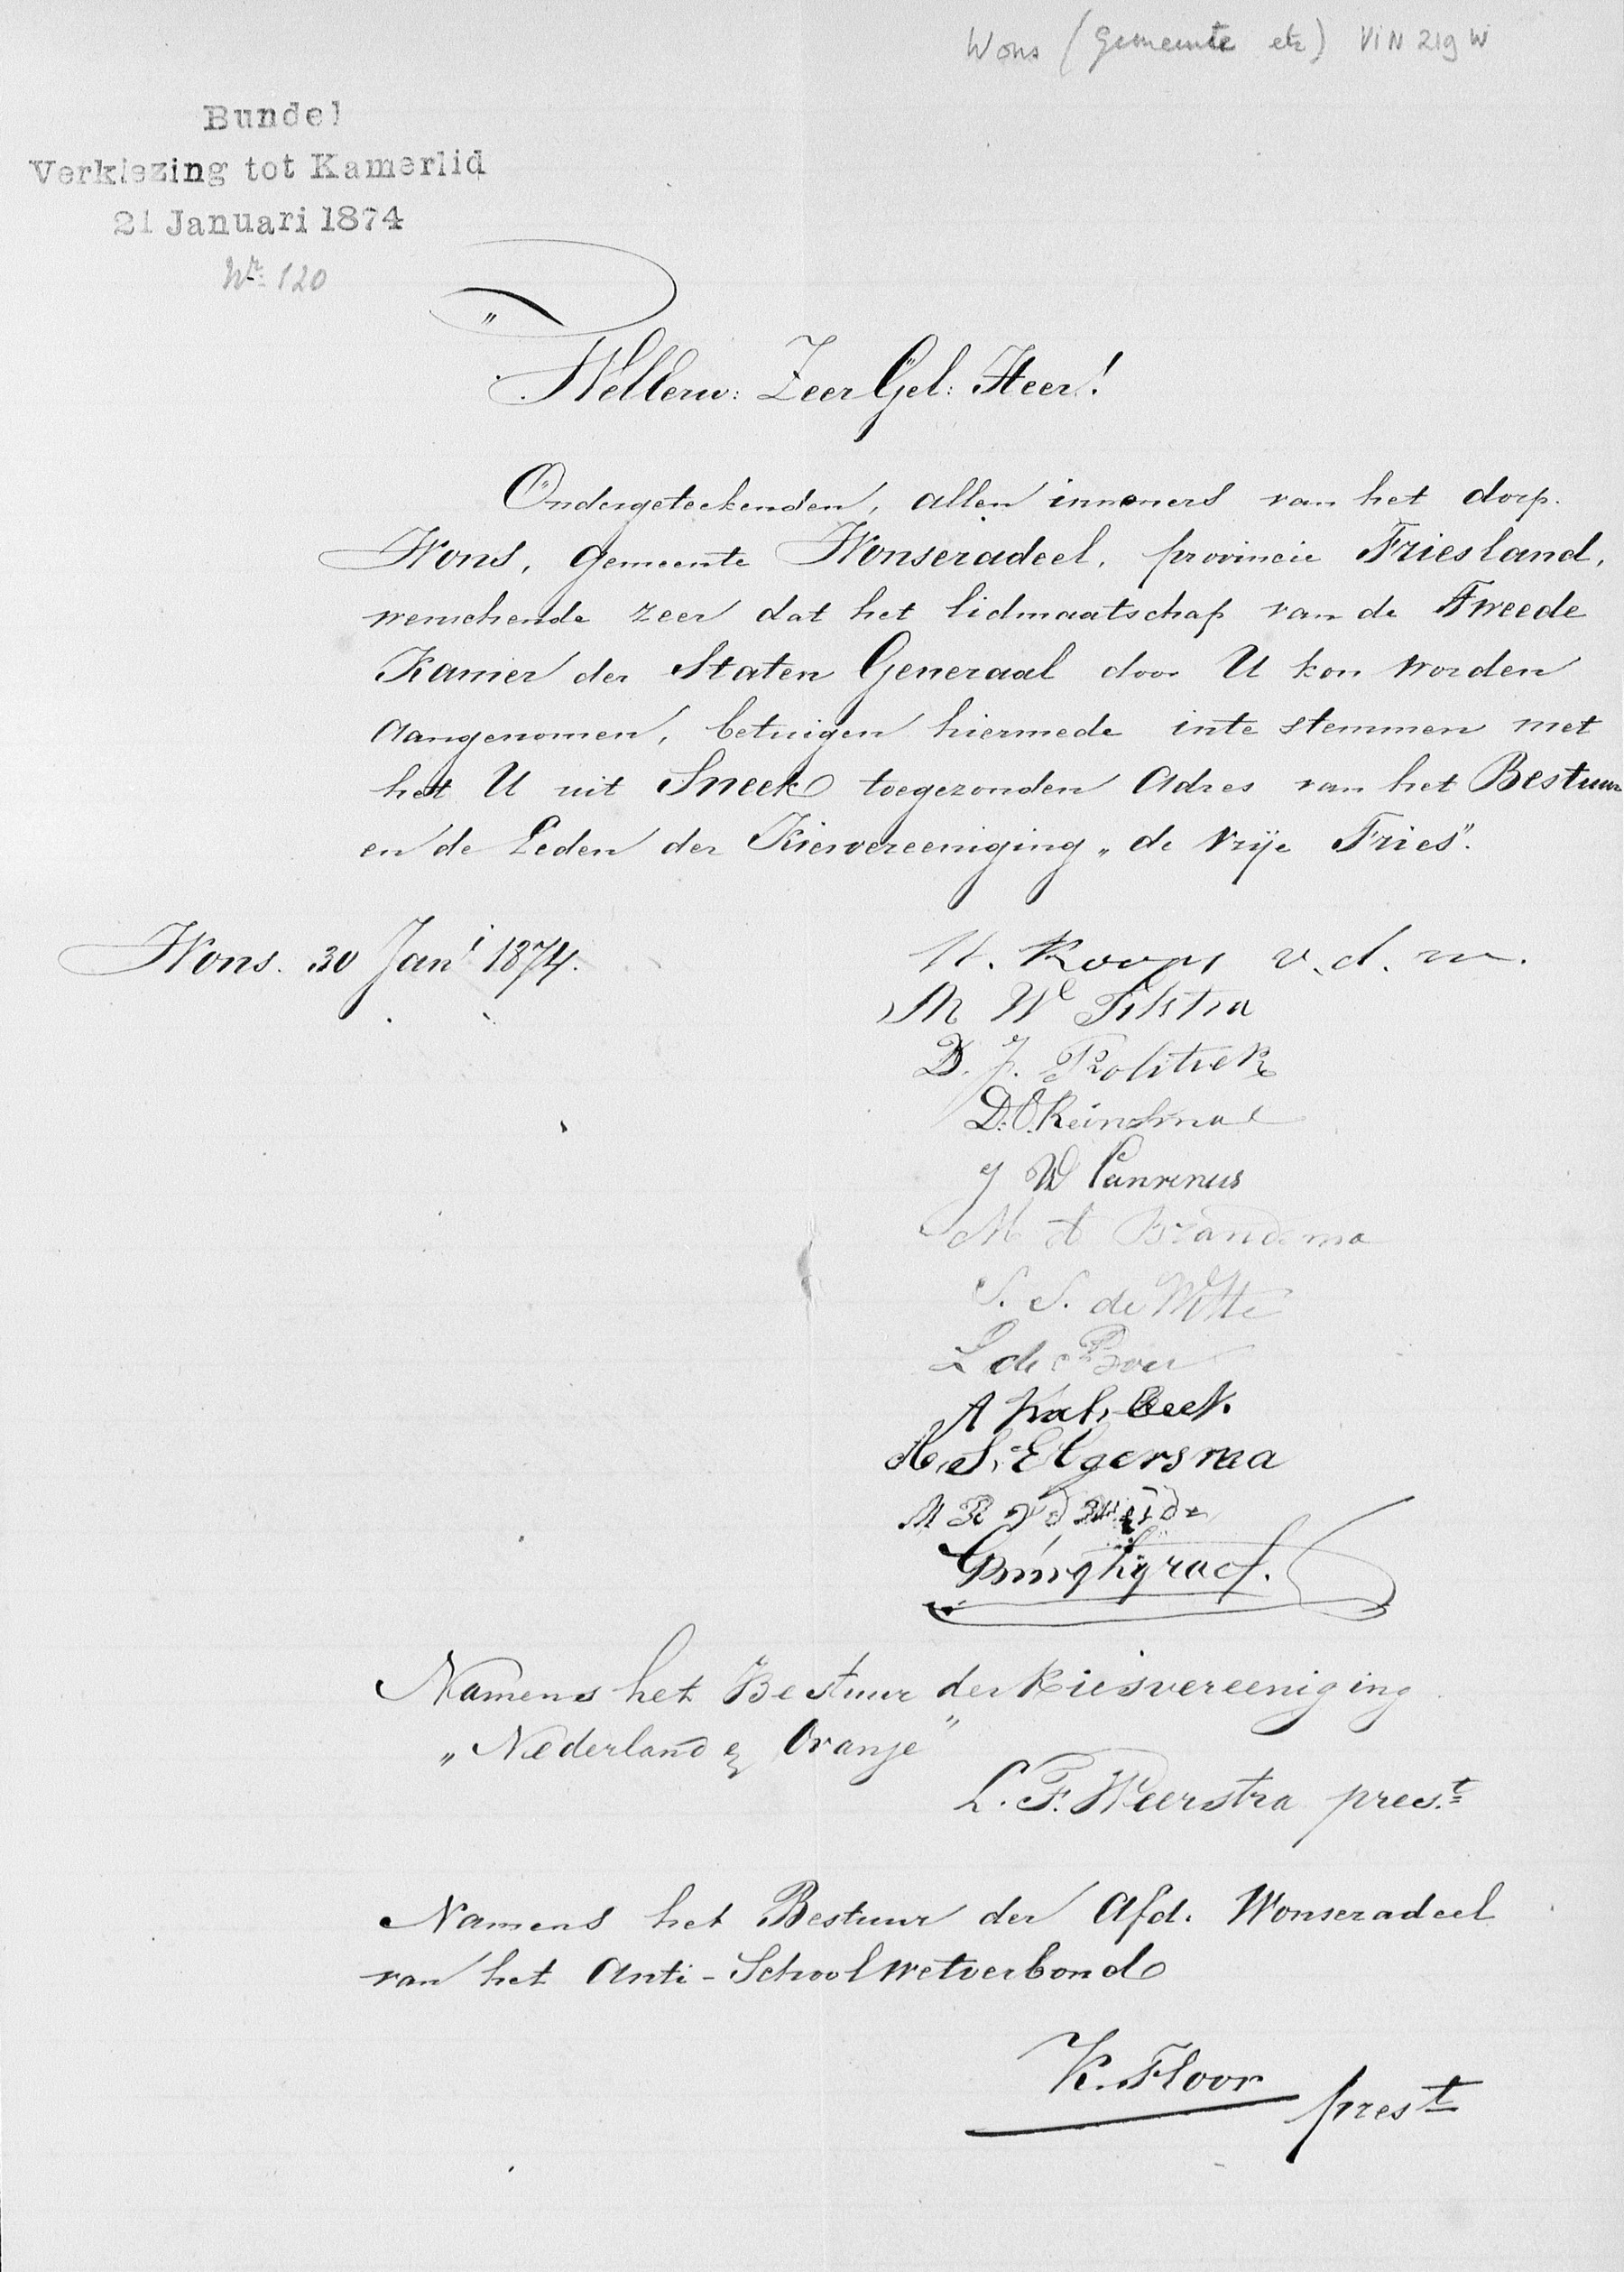 Wons (Gemeente etc) VIN 219 W
Bundel
Verkiezing tot Kamerlid
21 Januari 1874
Nr: 120
WelEerw: Zeer Gel: Heer!
Ondergeteekenden, allen inwoners van het dorp.
Wons, gemeente Wonseradeel, provincie Friesland,
wenschende zeer dat het lidmaatschap van de Tweede
Kamer der Staten Generaal door U kon worden
aangenomen, betuigen hiermede inte stemmen met
het U uit Sneek toegezonden Adres van het Bestuur
en de Leden der Kiesvereeniging „de Vrije Fries".
Wons. 30 Jani 1874.
H. Koops v.d.m.
M W Filstra
D. J. Politiek
D. O. Reinsma
J W Canrinus
M A Brandsma
S. S. de Witte
L de Boer
A Kalsbeek
H. S. Elgersma
M R
Burghgraef.
Namens het Bestuur der Kiesvereeniging
„Nederland & Oranje"
L. F. Weerstra prest
Namens het Bestuur der Afd. Wonseradeel
van het Anti-Schoolwetverbond
K. Floor prest